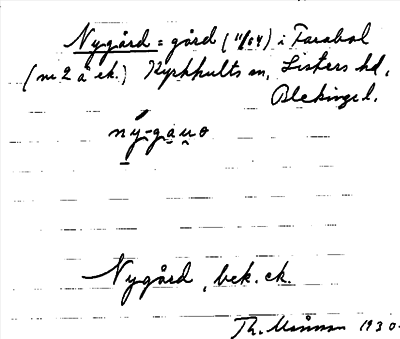 Nygård = gård (11/64) i Farabol
(nr 2 å ek.) Kyrkhults sn, Listers hd,
Blekinge l.
ny-gauo
Nygård, bek. ek.
Th. Månsson 1930.